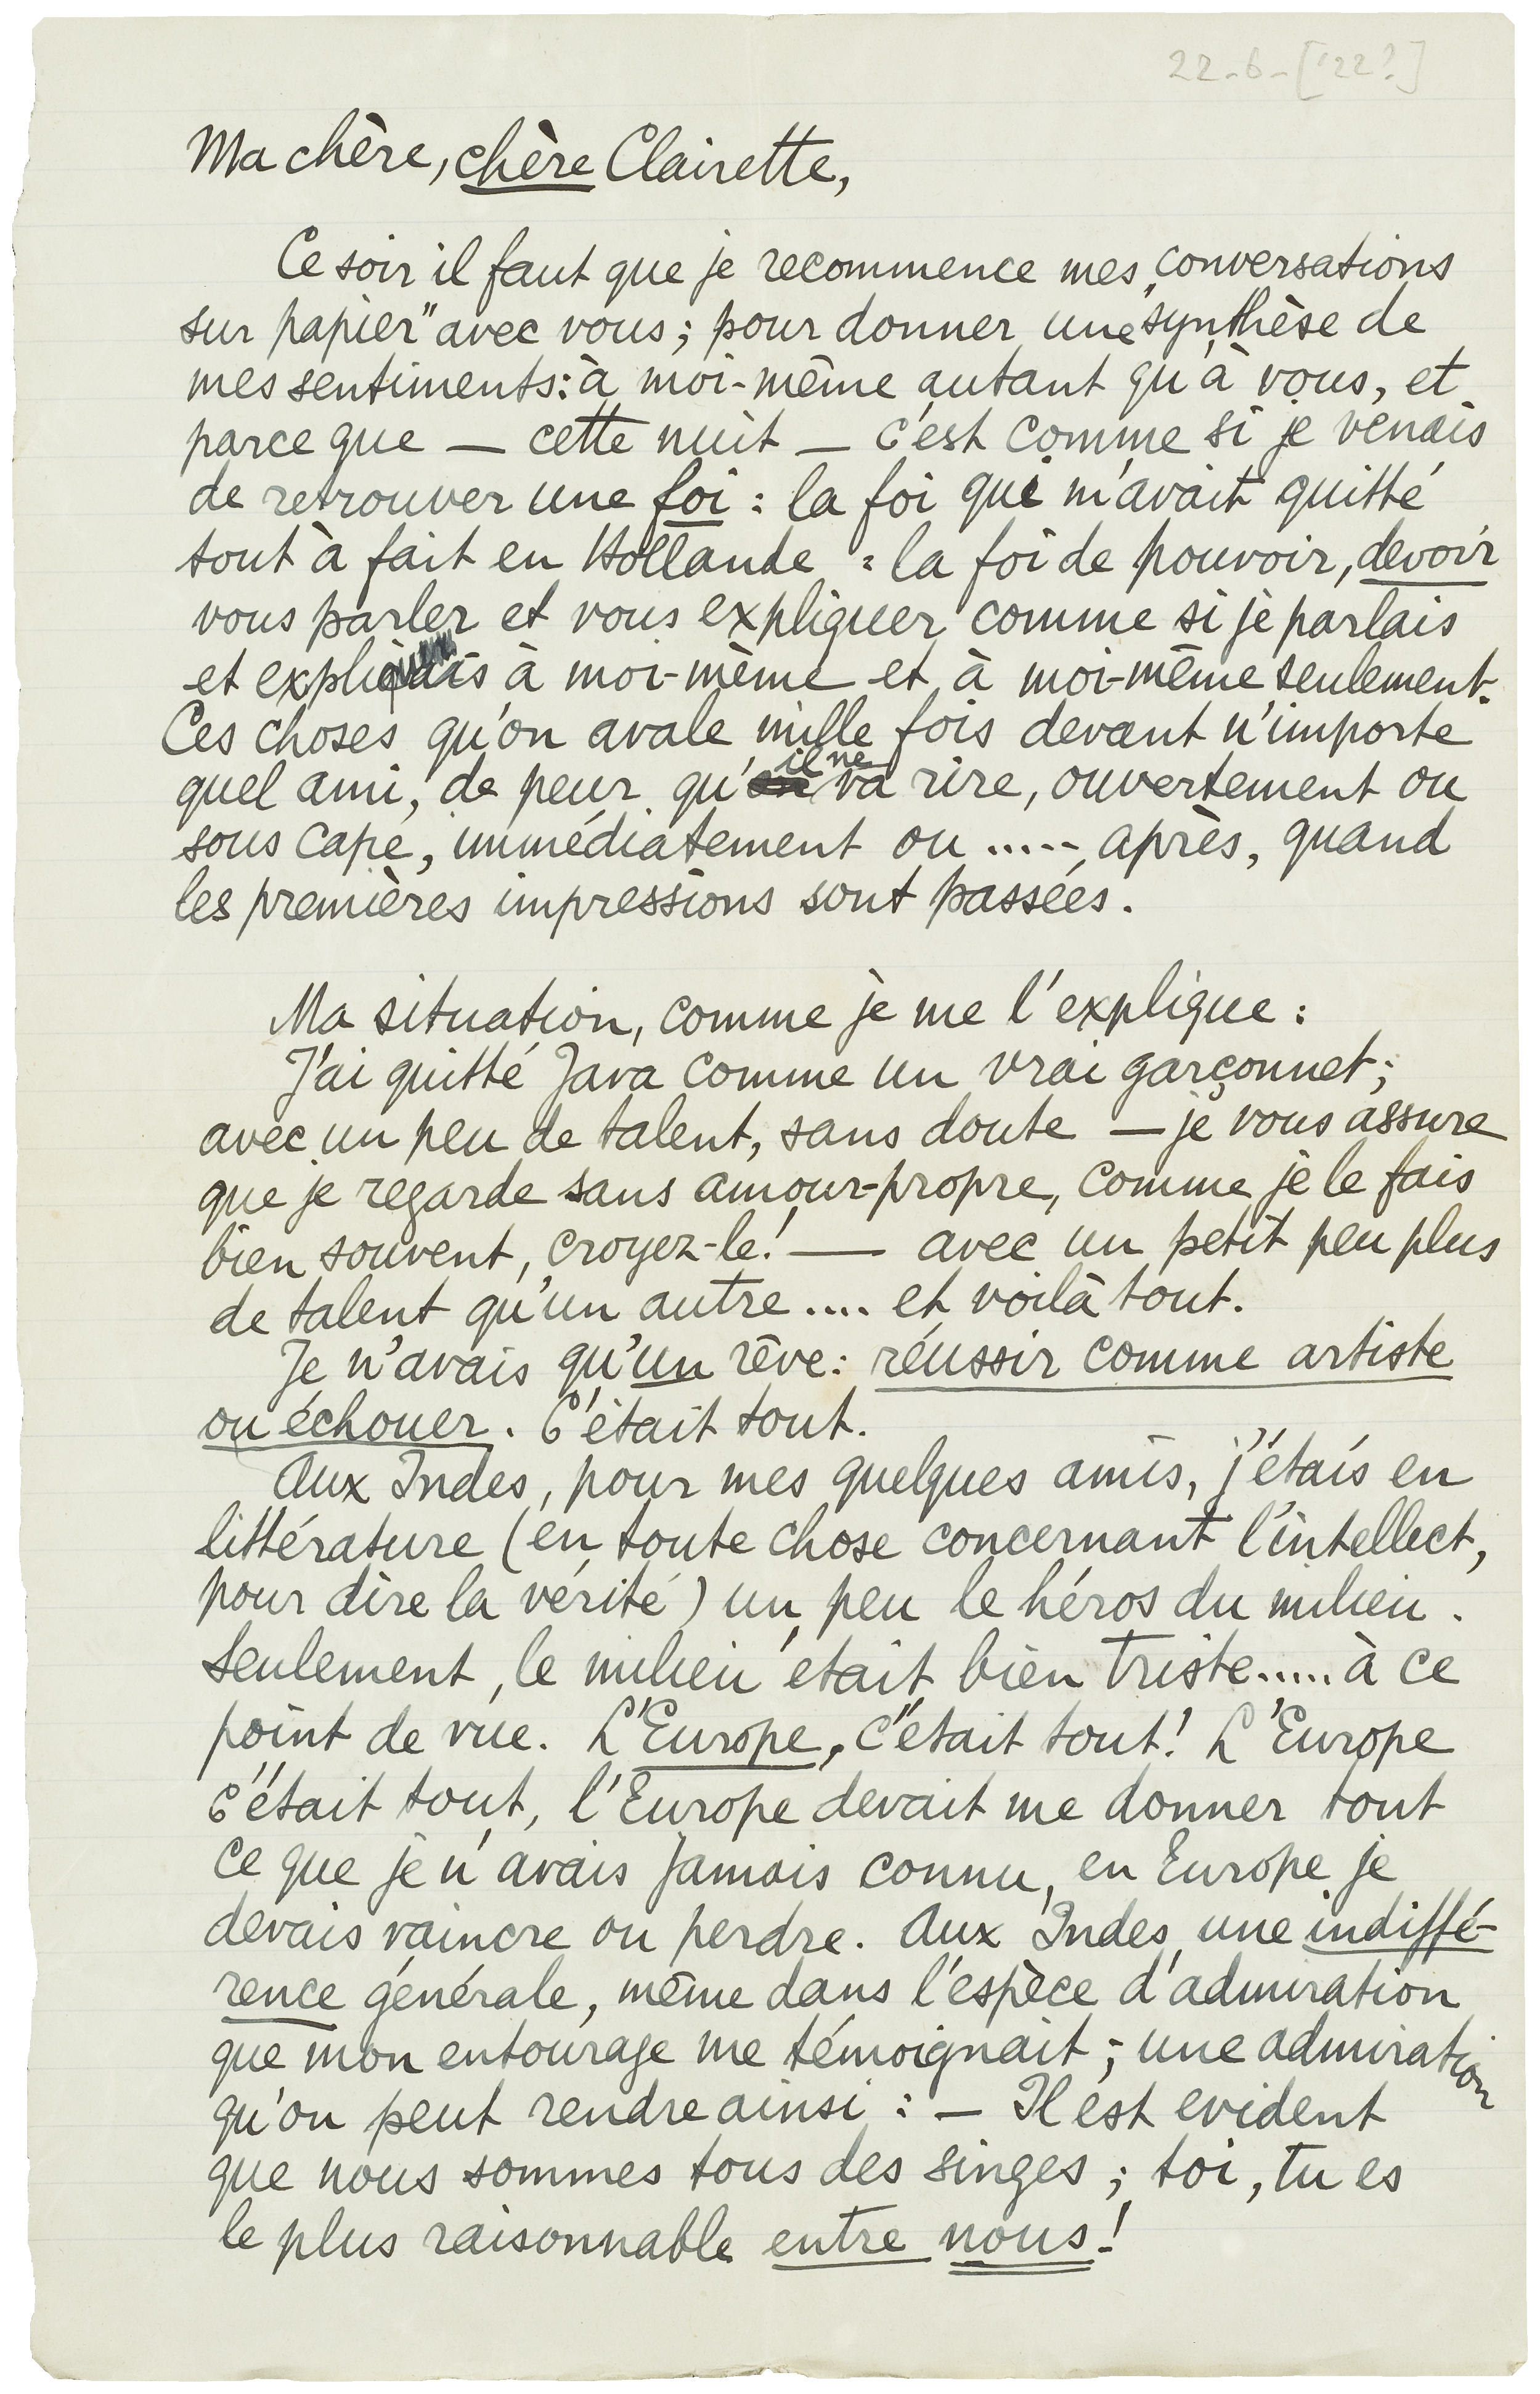 22-6-['22?]
Ma chère, chère Clairette,
Ce soir il faut que je recommence mes „conversations
sur papier” avec vous; pour donner une synthèse de
mes sentiments: à moi-même autant qu'à vous, et
parce que — cette nuit — c'est comme si je venais
de retrouver une foi : la foi qui m'avait quitté
tout à fait en Hollande : la foi de pouvoir, devoir
vous parler et vous expliquer comme si je parlais
et expliquais à moi-même et à moi-même seulement.
Ces choses qu'on avale mille fois devant n'importe
quel ami, de peur qu'il ne va rire, ouvertement ou
sous cape, immédiatement ou ..... après, quand
les premières impressions sont passées.
Ma situation, comme je me l'explique :
J'ai quitté Java comme un vrai garçonnet;
avec un peu de talent, sans doute — je vous assure
que je regarde sans amour-propre, comme je le fais
bien souvent, croyez-le! — avec un petit peu plus
de talent qu'un autre .... et voilà tout.
Je n'avais qu'un rêve: réussir comme artiste
ou échouer. C'était tout.
Aux Indes, pour mes quelques amis, j'étais en
littérature (en toute chose concernant l'intellect,
pour dire la vérité) un peu le héros du milieu.
Seulement, le milieu était bien triste..... à ce
point de vue. L'Europe, c'était tout! L'Europe
c'était tout, l'Europe devait me donner tout
ce que je n'avais jamais connu, en Europe je
devais vaincre ou perdre. Aux Indes, une indiffé-
rence générale, même dans l'espèce d'admiration
que mon entourage me témoignait; une admiration
qu'on peut rendre ainsi : — Il est evident
que nous sommes tous des singes; toi, tu es
le plus raisonnable entre nous!